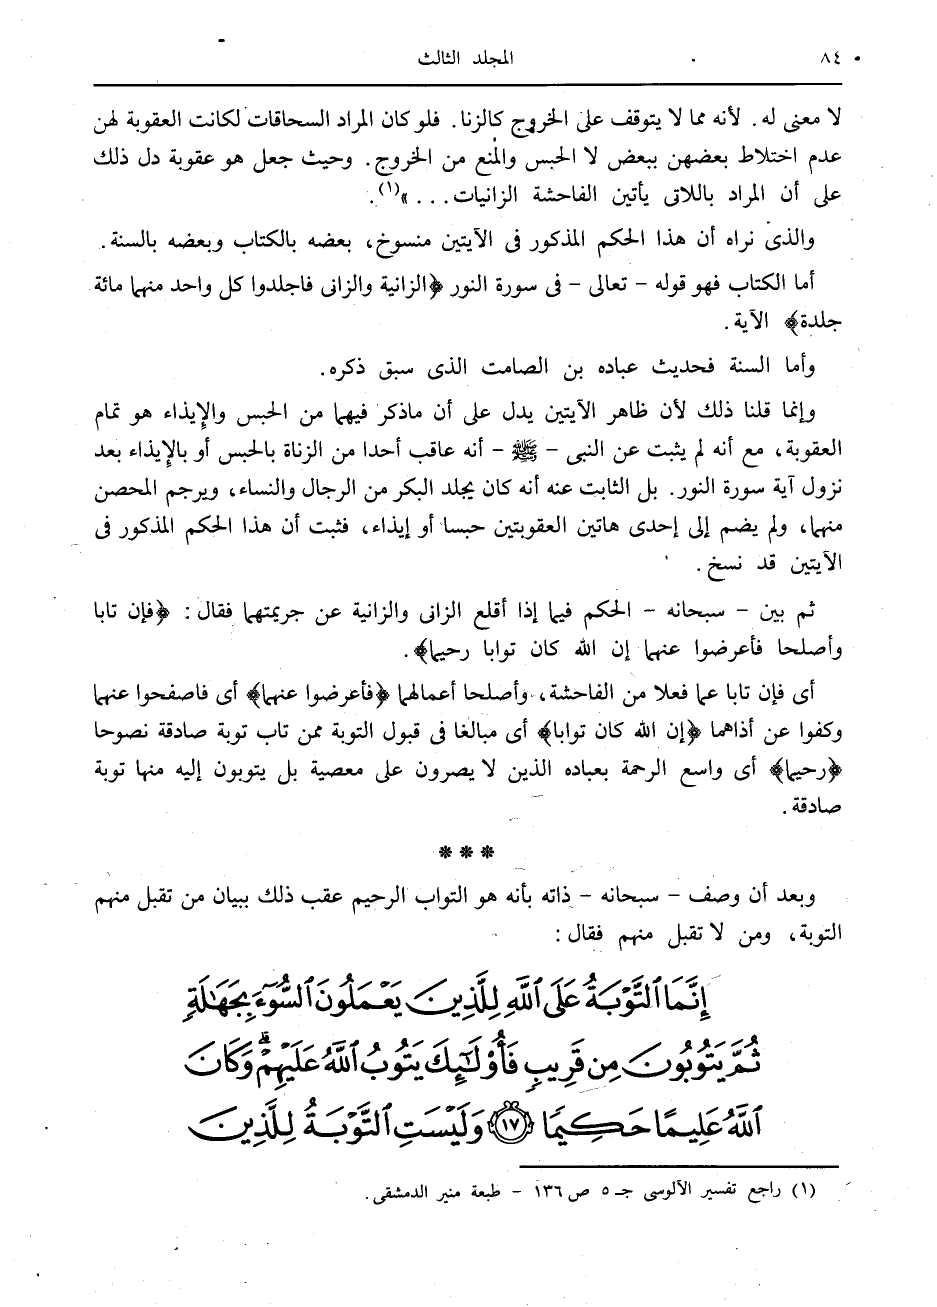 ٨٤ المجلد الثالث
لا معنى له. لأنه مما لا يتوقف على الخروج كالزنا. فلو كان المراد السحاقات لكانت العقوبة لهن
عدم اختلاط بعضهن ببعض لا الحبس والمنع من الخروج. وحيث جعل هو عقوبة دل ذلك
على أن المراد باللاتى يأتين الفاحشة الزانيات...»(١).
والذى نراه أن هذا الحكم المذكور فى الآيتين منسوخ، بعضه بالكتاب وبعضه بالسنة.
أما الكتاب فهو قوله - تعالى - فى سورة النور ﴿الزانية والزانى فاجلدوا كل واحد منهما مائة
جلدة﴾ الآية.
وأما السنة فحديث عباده بن الصامت الذى سبق ذكره.
وإنما قلنا ذلك لأن ظاهر الآيتين يدل على أن ماذكر فيهما من الحبس والإيذاء هو تمام
العقوبة، مع أنه لم يثبت عن النبى - ﷺ - أنه عاقب أحدا من الزناة بالحبس أو بالإيذاء بعد
نزول آية سورة النور. بل الثابت عنه أنه كان يجلد البكر من الرجال والنساء، ويرجم المحصن
منهما، ولم يضم إلى إحدى هاتين العقوبتين حبسا أو إيذاء، فثبت أن هذا الحكم المذكور فى
الآيتين قد نسخ.
ثم بين - سبحانه - الحكم فيما إذا أقلع الزانى والزانية عن جريمتهما فقال: ﴿فإن تابا
وأصلحا فأعرضوا عنهما إن الله كان توابا رحيما﴾.
أى فإن تابا عما فعلا من الفاحشة، وأصلحا أعمالهما ﴿فأعرضوا عنهما﴾ أى فاصفحوا عنهما
وكفوا عن أذاهما ﴿إن الله كان توابا﴾ أى مبالغا فى قبول التوبة ممن تاب توبة صادقة نصوحا
﴿رحيما﴾ أى واسع الرحمة بعباده الذين لا يصرون على معصية بل يتوبون إليه منها توبة
صادقة.
* * *
وبعد أن وصف - سبحانه - ذاته بأنه هو التواب الرحيم عقب ذلك ببيان من تقبل منهم
التوبة، ومن لا تقبل منهم فقال:
إِنَّمَا ٱلتَّوْبَةُ عَلَى ٱللَّهِ لِلَّذِينَ يَعْمَلُونَ ٱلسُّوٓءَ بِجَهَٰلَةٍ
ثُمَّ يَتُوبُونَ مِن قَرِيبٍ فَأُوْلَٰٓئِكَ يَتُوبُ ٱللَّهُ عَلَيْهِمْۗ وَكَانَ
ٱللَّهُ عَلِيمًا حَكِيمًا ١٧ وَلَيْسَتِ ٱلتَّوْبَةُ لِلَّذِينَ
(١) راجع تفسير الآلوسى جـ ٥ ص ١٣٦ - طبعة منير الدمشقى.